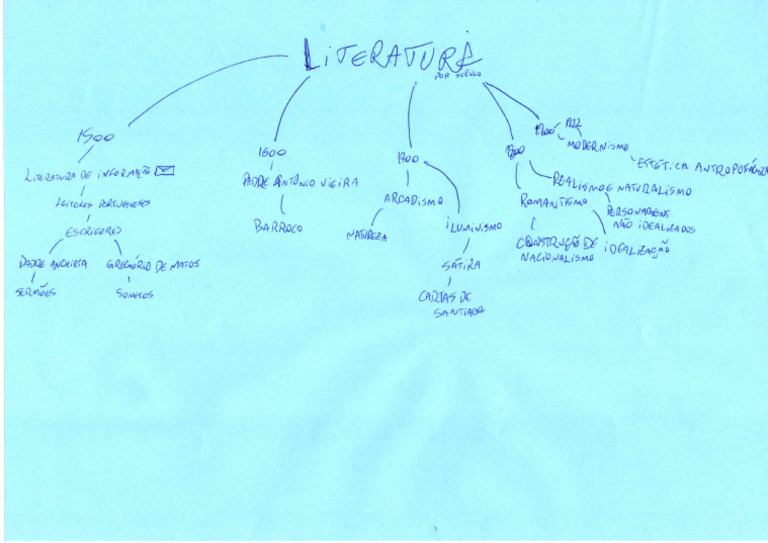 LITERATURA
POR SÉCULO
1500
LITERATURA DE INFORMAÇÃO
LEITORES PORTUGUESES
ESCRITORES
PADRE ANCHIETA
SERMÕES
GREGÓRIO DE MATOS
SONETOS
1600
PADRE ANTÔNIO VIEIRA
BARROCO
1700
ARCADISMO
NATUREZA
ILUMINISMO
SÁTIRA
CARTAS DE
SANTIAGO
1800
ROMANTISMO
CONSTRUÇÃO DE
NACIONALISMO
IDEALIZAÇÃO
REALISMO E NATURALISMO
PERSONAGENS
NÃO IDEALIZADOS
1900
1922
MODERNISMO
ESTÉTICA ANTROPOFÁGICA